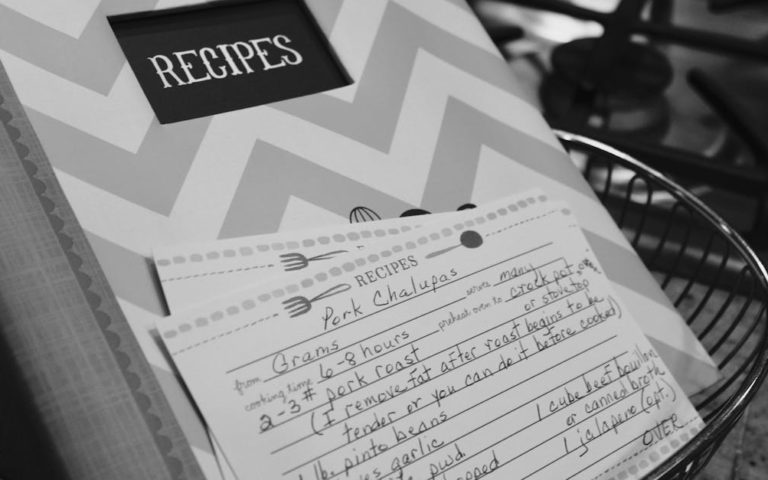 RECIPES
RECIPES
Pork Chalupas
serves many
from Grams
preheat oven to crock pot,
or stovetop
cooking time 6-8 hours
2-3# pork roast
(I remove fat after roast begins to be
tender or you can do it before cooked)
lb. pinto beans
1 cube beef bouillon
garlic
or canned broth
pwd
1 jalapeno (opt.)
OVER